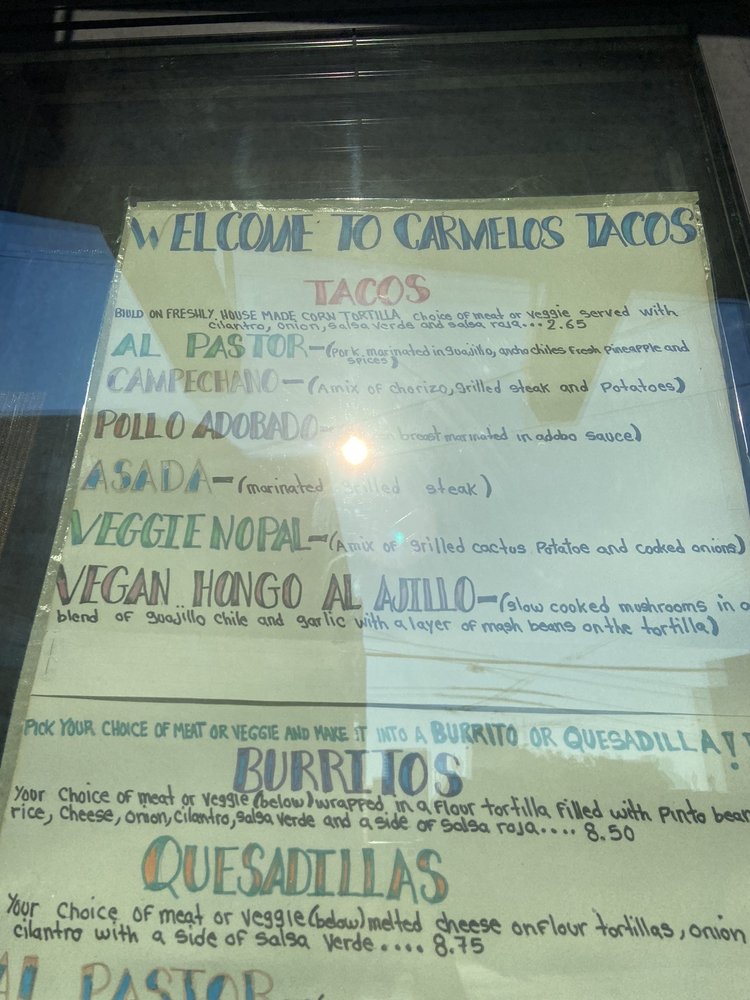 WELCOME TO CARMELOS TACOS
TACOS
BIULD ON FRESHLY HOUSE MADE CORN TORTILLA, choice of meat or veggie served with
cilantro, onion, salsa verde and salsa roja... 2.65
AL PASTOR-(Pork marinated in guajillo, ancho chiles fresh pineapple and
spices)
CAMPECHANO-(A mix of chorizo, grilled steak and Potatoes)
POLLO ADOBADO- breast marinated in adobo sauce)
ASADA-(marinated grilled steak)
VEGGIE NOPAL-(A mix of grilled cactus. Potatoe and cooked onions)
VEGAN HONGO AL AJILLO-(slow cooked mushrooms in a
blend of guajillo chile and garlic with a layer of mash beans on the tortilla)
PICK YOUR CHOICE OF MEAT OR VEGGIE AND MAKE IT INTO A BURRITO OR QUESADILLA!!
BURRITOS
Your Choice of meat or veggie (below) wrapped in a flour tortilla filled with Pinto bean
rice, cheese, onion, cilantro, salsa verde and a side of salsa roja.... 8.50
QUESADILLAS
Your Choice of meat or veggie (below) melted cheese on flour tortillas, onion
cilantro with a side of salsa verde.... 8.75
AL PASTOR